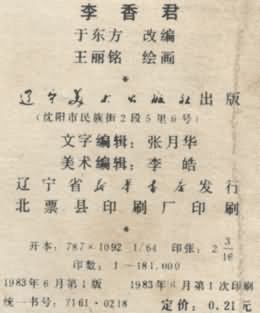 李香君
于东方 改编
王丽铭 绘画
*
辽宁美术出版社出版
(沈阳市民族街2段5里6号)
文字编辑：张月华
美术编辑：李皓
辽宁省新华书店发行
北票县印刷厂印刷
*
开本：787×1092 1/64 印张：2 3/16
印数：1—181,000
1983年6月第1版 1983年6月第1次印刷
统一书号：7161·0218 定价：0.21元